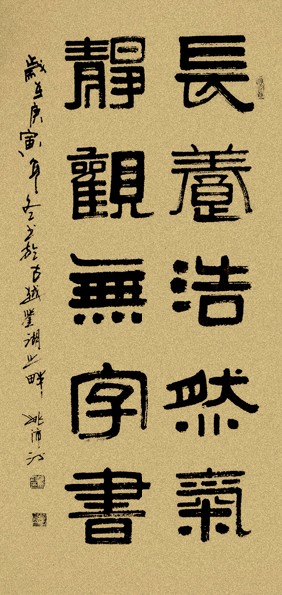 長養浩然氣
靜觀無字書
歲在庚寅年冬書於古越鑒湖之畔